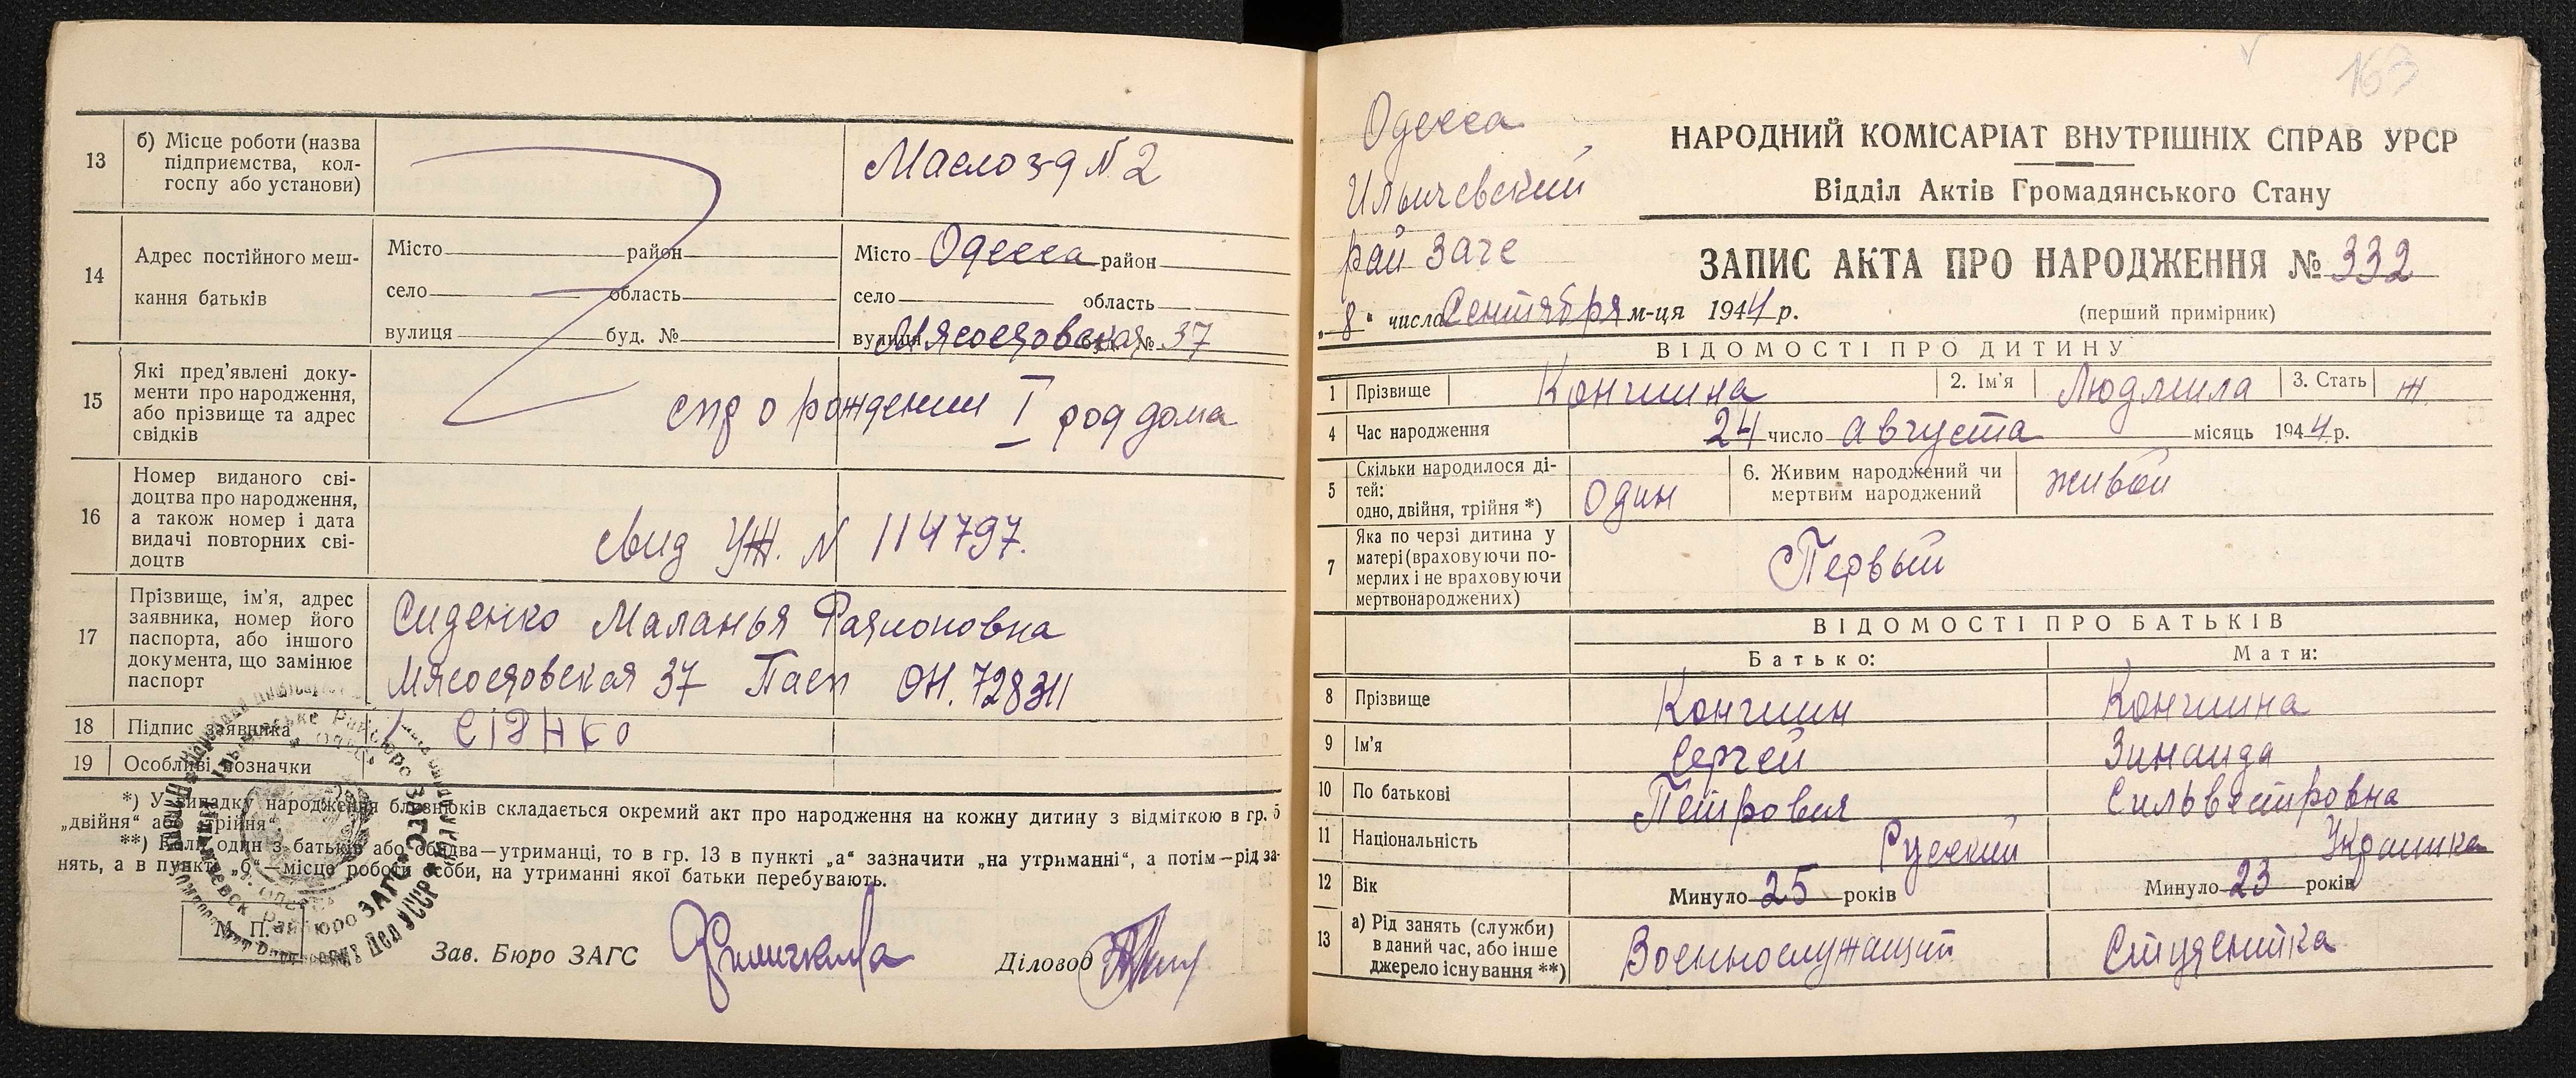 13
б) Місце роботи (назва
підприємства, кол-
госпу або установи)
Маслоз-д N 2
14
Адрес постійного меш-
кання батьків
Місто район
село область
вулиця буд. №
Місто Одесса район
село область
вулиця Мясоедовская буд. № 37
15
Які пред'явлені доку-
менти про народження,
або прізвище та адрес
свідків
спр о рождении I род дома
16
Номер виданого сві-
доцтва про народження,
а також номер і дата
видачі повторних сві-
доцтв
свид УЖ. N 114797.
17
Прізвище, ім'я, адрес
заявника, номер його
паспорта, або іншого
документа, що замінює
паспорт
Сиденко Маланья
Мясоедовская 37 Пасп ОН. 728311
18 Підпис заявника СІДНКО
19 Особливі позначки
*) У випадку народження близнюків складається окремий акт про народження на кожну дитину з відміткою в гр. 5
„двійня“ або „трійня“.
**) Коли один з батьків або обидва—утриманці, то в гр. 13 в пункті „а“ зазначити „на утриманні“, а потім—рід за-
нять, а в пункті „б“—місце роботи особи, на утриманні якої батьки перебувають.
М. П.
Зав. Бюро ЗАГС
Діловод
163
Одесса
Ильичевский
рай загс
„8“ число Сентября м-ця 1944 р.
НАРОДНИЙ КОМІСАРІАТ ВНУТРІШНІХ СПРАВ УРСР
Відділ Актів Громадянського Стану
ЗАПИС АКТА ПРО НАРОДЖЕННЯ № 332
(перший примірник)
ВІДОМОСТІ ПРО ДИТИНУ
1 Прізвище Коншина 2. Ім'я Людмила 3. Стать Ж.
4 Час народження 24 число августа місяць 1944 р.
5
Скільки народилося ді-
тей:
одно, двійня, трійня *)
один
6. Живим народжений чи
мертвим народжений
живой
7
Яка по черзі дитина у
матері (враховуючи по-
мерлих і не враховуючи
мертвонароджених)
Первый
ВІДОМОСТІ ПРО БАТЬКІВ
Батько: Мати:
8 Прізвище Коншин Коншина
9 Ім'я Сергей Зинаида
10 По батькові Петрович Сильвестровна
11 Національність Русский Украинка
12 Вік Минуло 25 років Минуло 23 років
13
а) Рід занять (служби)
в даний час, або інше
джерело існування **)
Военнослужащий Студентка